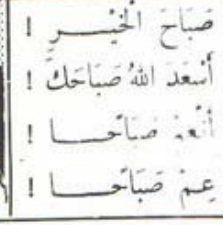 صَبَاحَ الْخَيْــرِ !
أَسْعَدَ اللهُ صَبَاحَكَ !
أَنْعِمْ صَبَاحًــا !
عِمْ صَبَاحًــا !